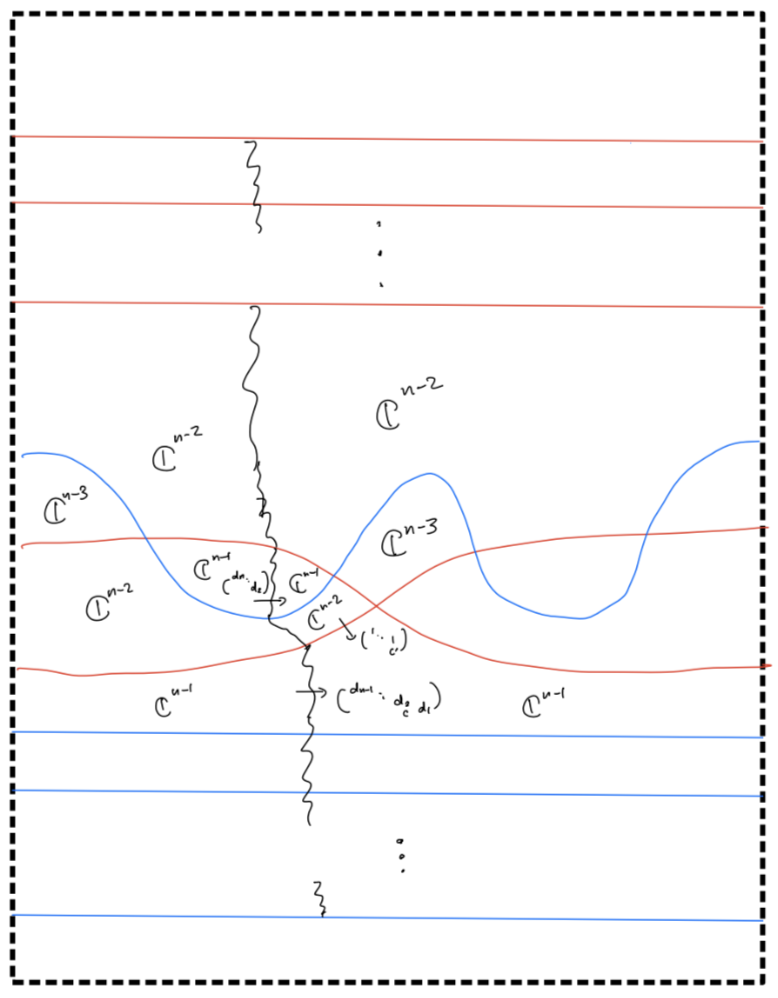 ℂⁿ⁻²
ℂⁿ⁻²
ℂⁿ⁻³
ℂⁿ⁻³
ℂⁿ⁻¹
(dₙ ⋱ d₂)
ℂⁿ⁻¹
ℂⁿ⁻²
ℂⁿ⁻²
(1 ⋱ 1 c)
ℂⁿ⁻¹
(dₙ₋₁ ⋱ d₂ c d₁)
ℂⁿ⁻¹